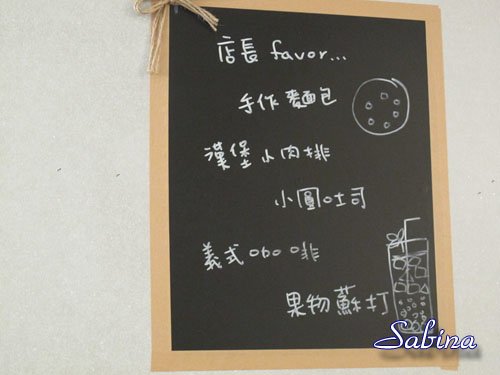 店長 favor...
手作麵包
漢堡小肉排
小圓吐司
義式咖啡
果物蘇打
Sabina